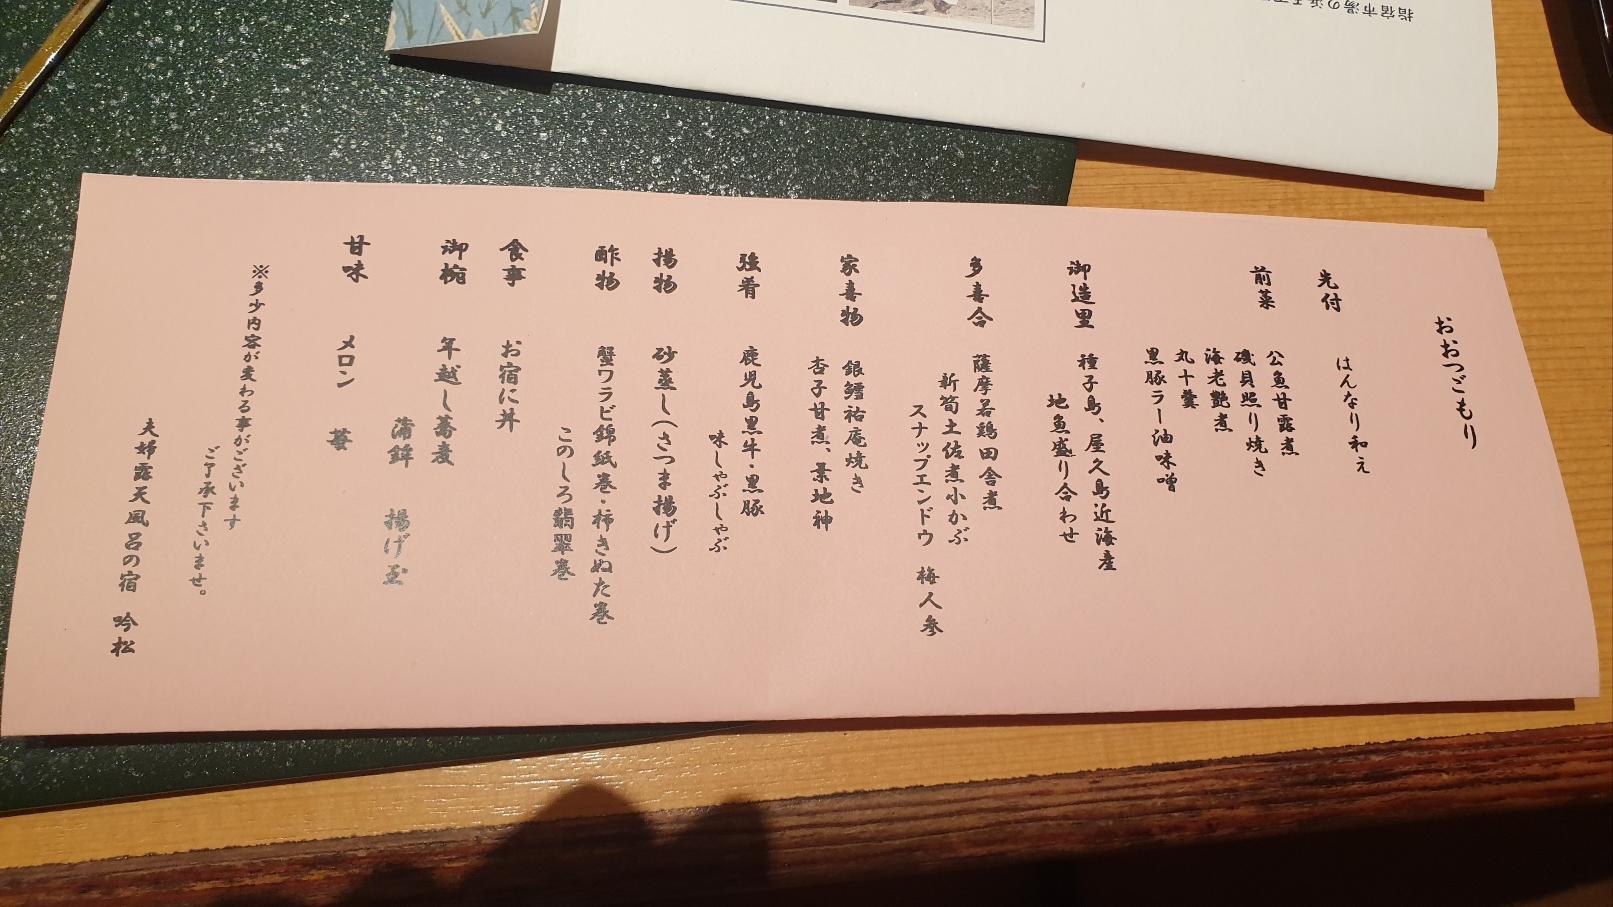 おおつごもり
先付　はんなり和え
前菜　公魚甘露煮
磯貝照り焼き
海老艶煮
丸十羹
黒豚ラー油味噌
御造里　種子島、屋久島近海産
地魚盛り合わせ
多喜合　薩摩若鶏田舎煮
新筍土佐煮小かぶ
スナップエンドウ　梅人参
家喜物　銀鱈祐庵焼き
杏子甘煮、葉地神
強肴　鹿児島黒牛・黒豚
味しゃぶしゃぶ
揚物　砂蒸し(さつま揚げ)
酢物　蟹ワラビ錦紙巻・柿きぬた巻
このしろ翡翠巻
食事　お宿に丼
御椀　年越し蕎麦
蒲鉾　揚げ玉
甘味　メロン　苺
※多少内容が変わる事がございます
ご了承下さいませ。
夫婦露天風呂の宿　吟松
指宿市湯の浜